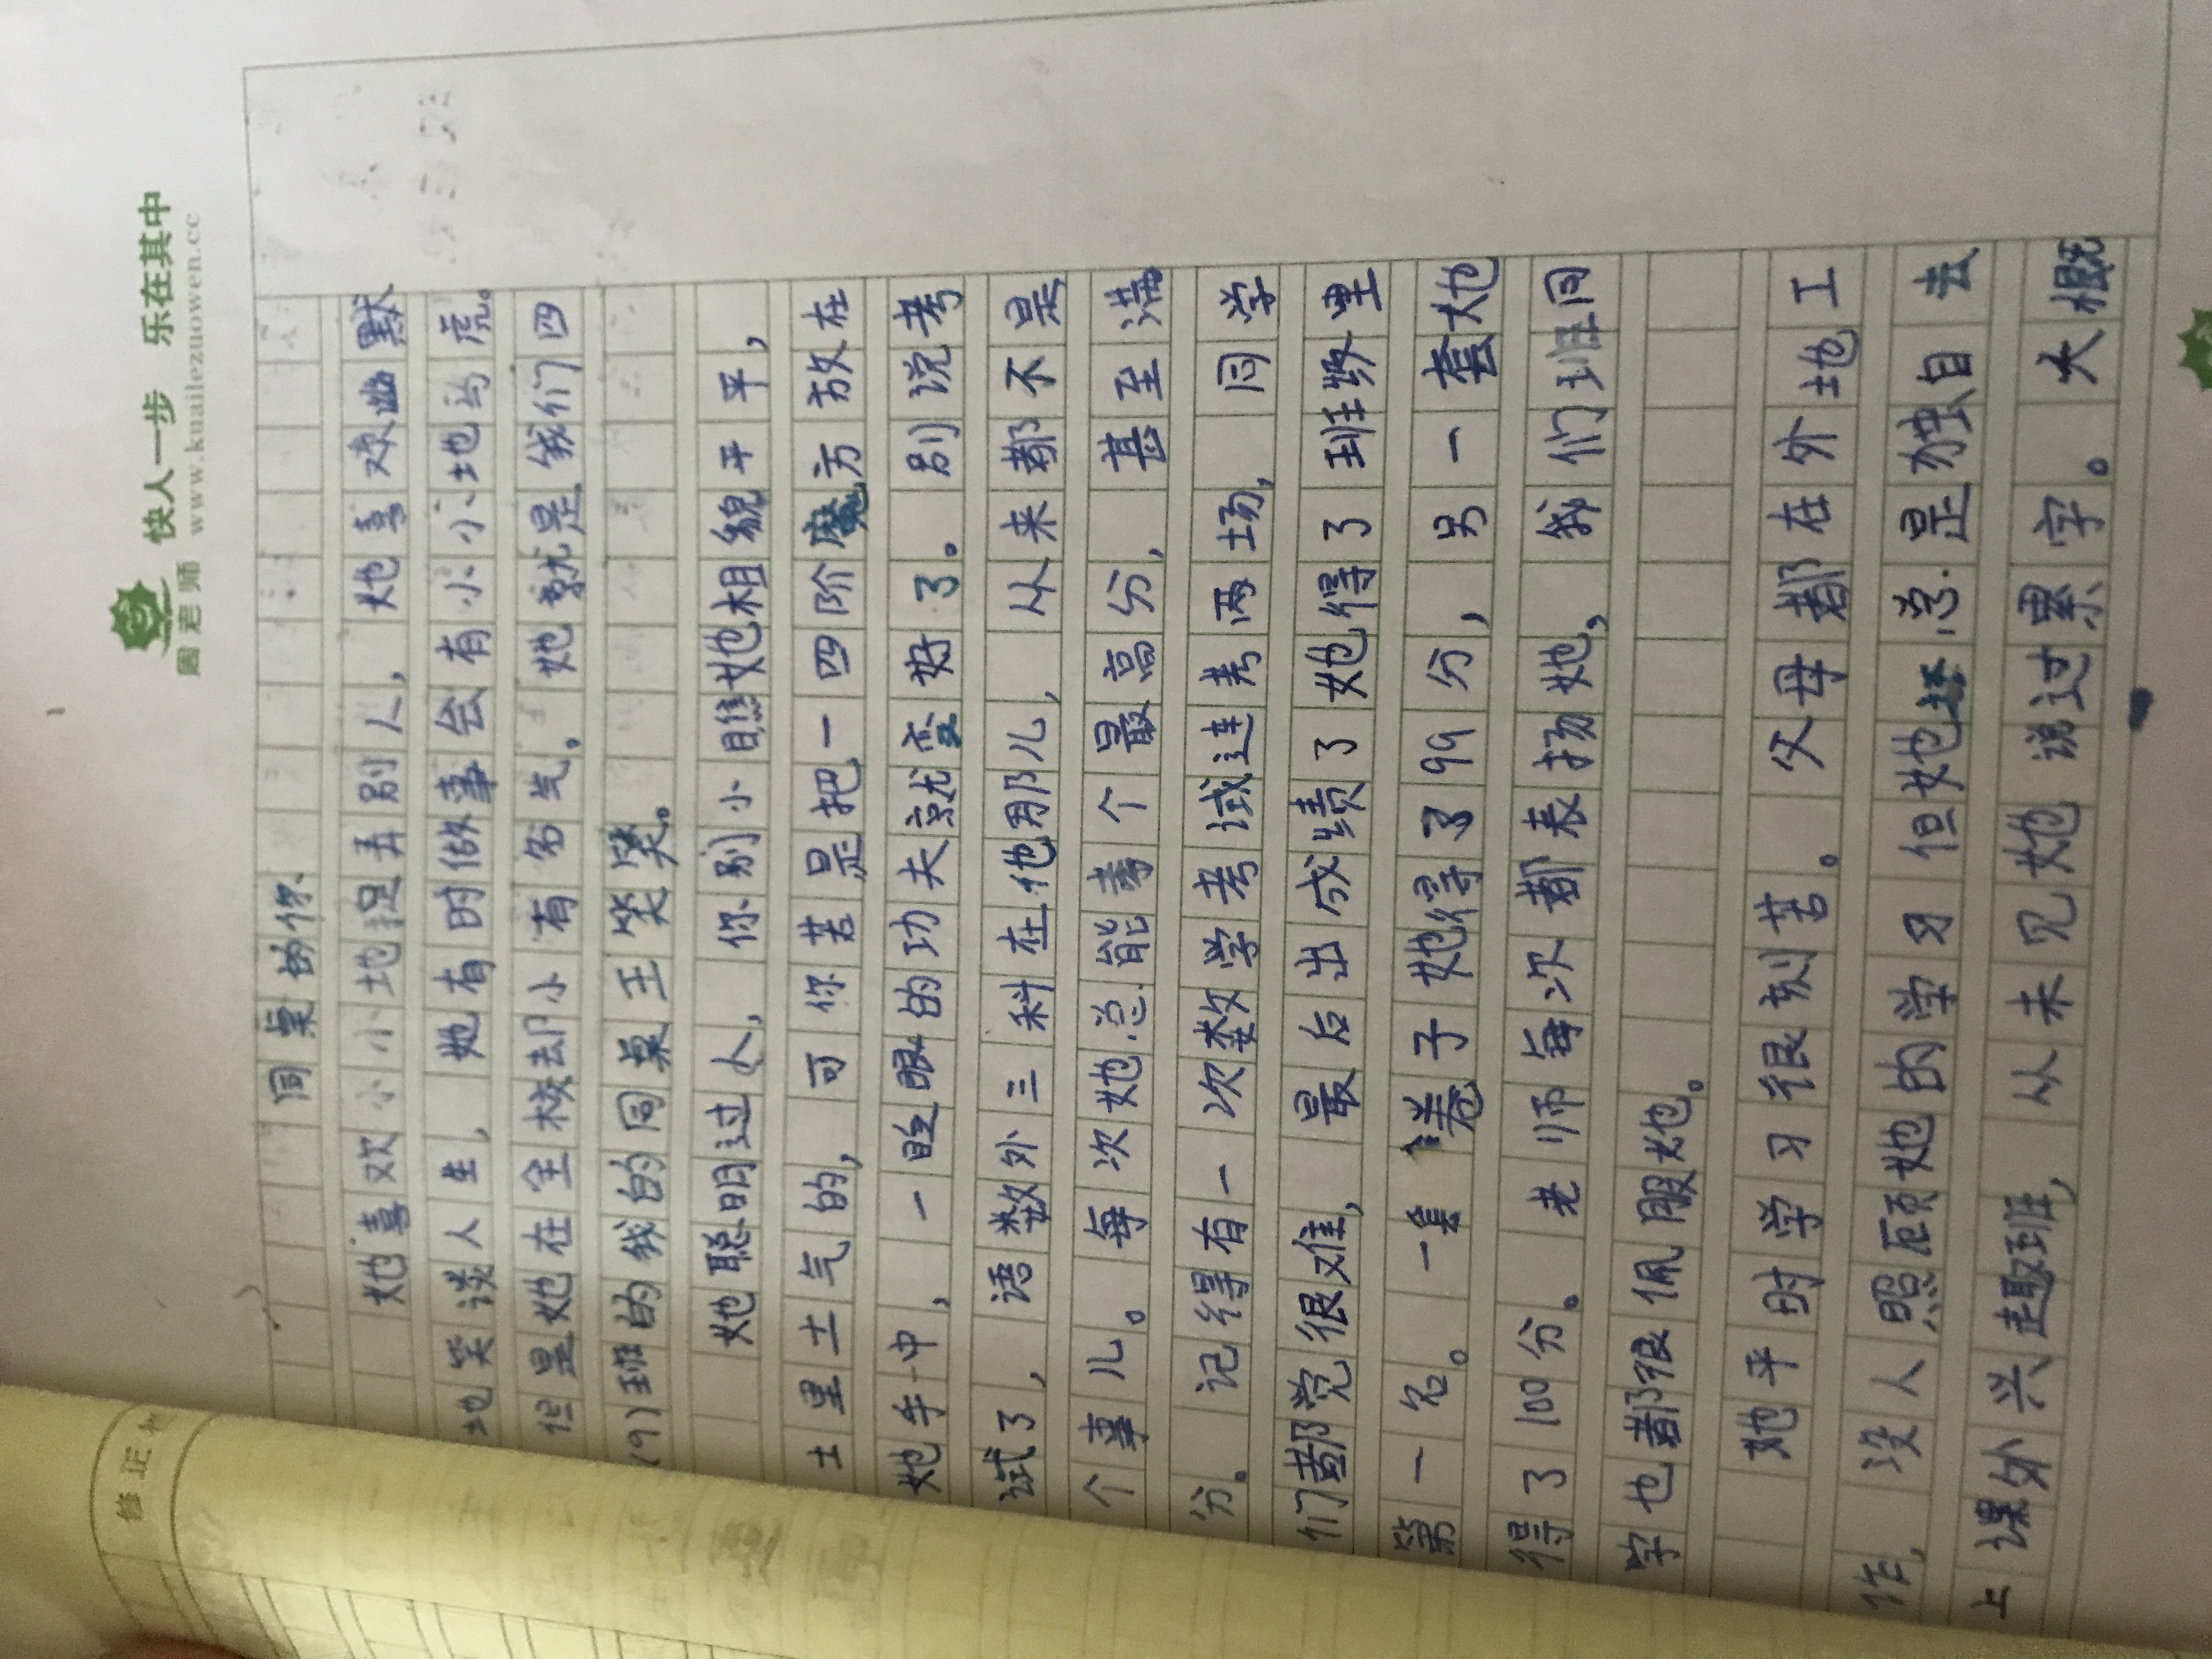 快人一步 乐在其中
周老师 www.kuailezuowen.cc
同桌的你
她喜欢小小地捉弄别人，她喜欢幽默
地笑谈人生，她有时做事会有小小地马虎。
但是她在全校却小有名气，她就是我们四
(9)班的我的同桌王笑笑。
她聪明过人，你别小瞧她相貌平平，
土里土气的，可你若是把一四阶魔方放在
她手中，一眨眼的功夫就变好了。别说考
试了，语数外三科在他那儿，从来都不是
个事儿。每次她总能考个最高分，甚至满
分。记得有一次数学考试连考两场，同学
们都觉很难，最后出成绩了她得了班级里
第一名。一套卷子她得了99分，另一套她
得了100分。老师每次都表扬她，我们班同
学也都很佩服她。
她平时学习很刻苦。父母都在外地工
作，没人照顾她的学习但她总是独自去
上课外兴趣班，从未见她说过累字。大概
修正